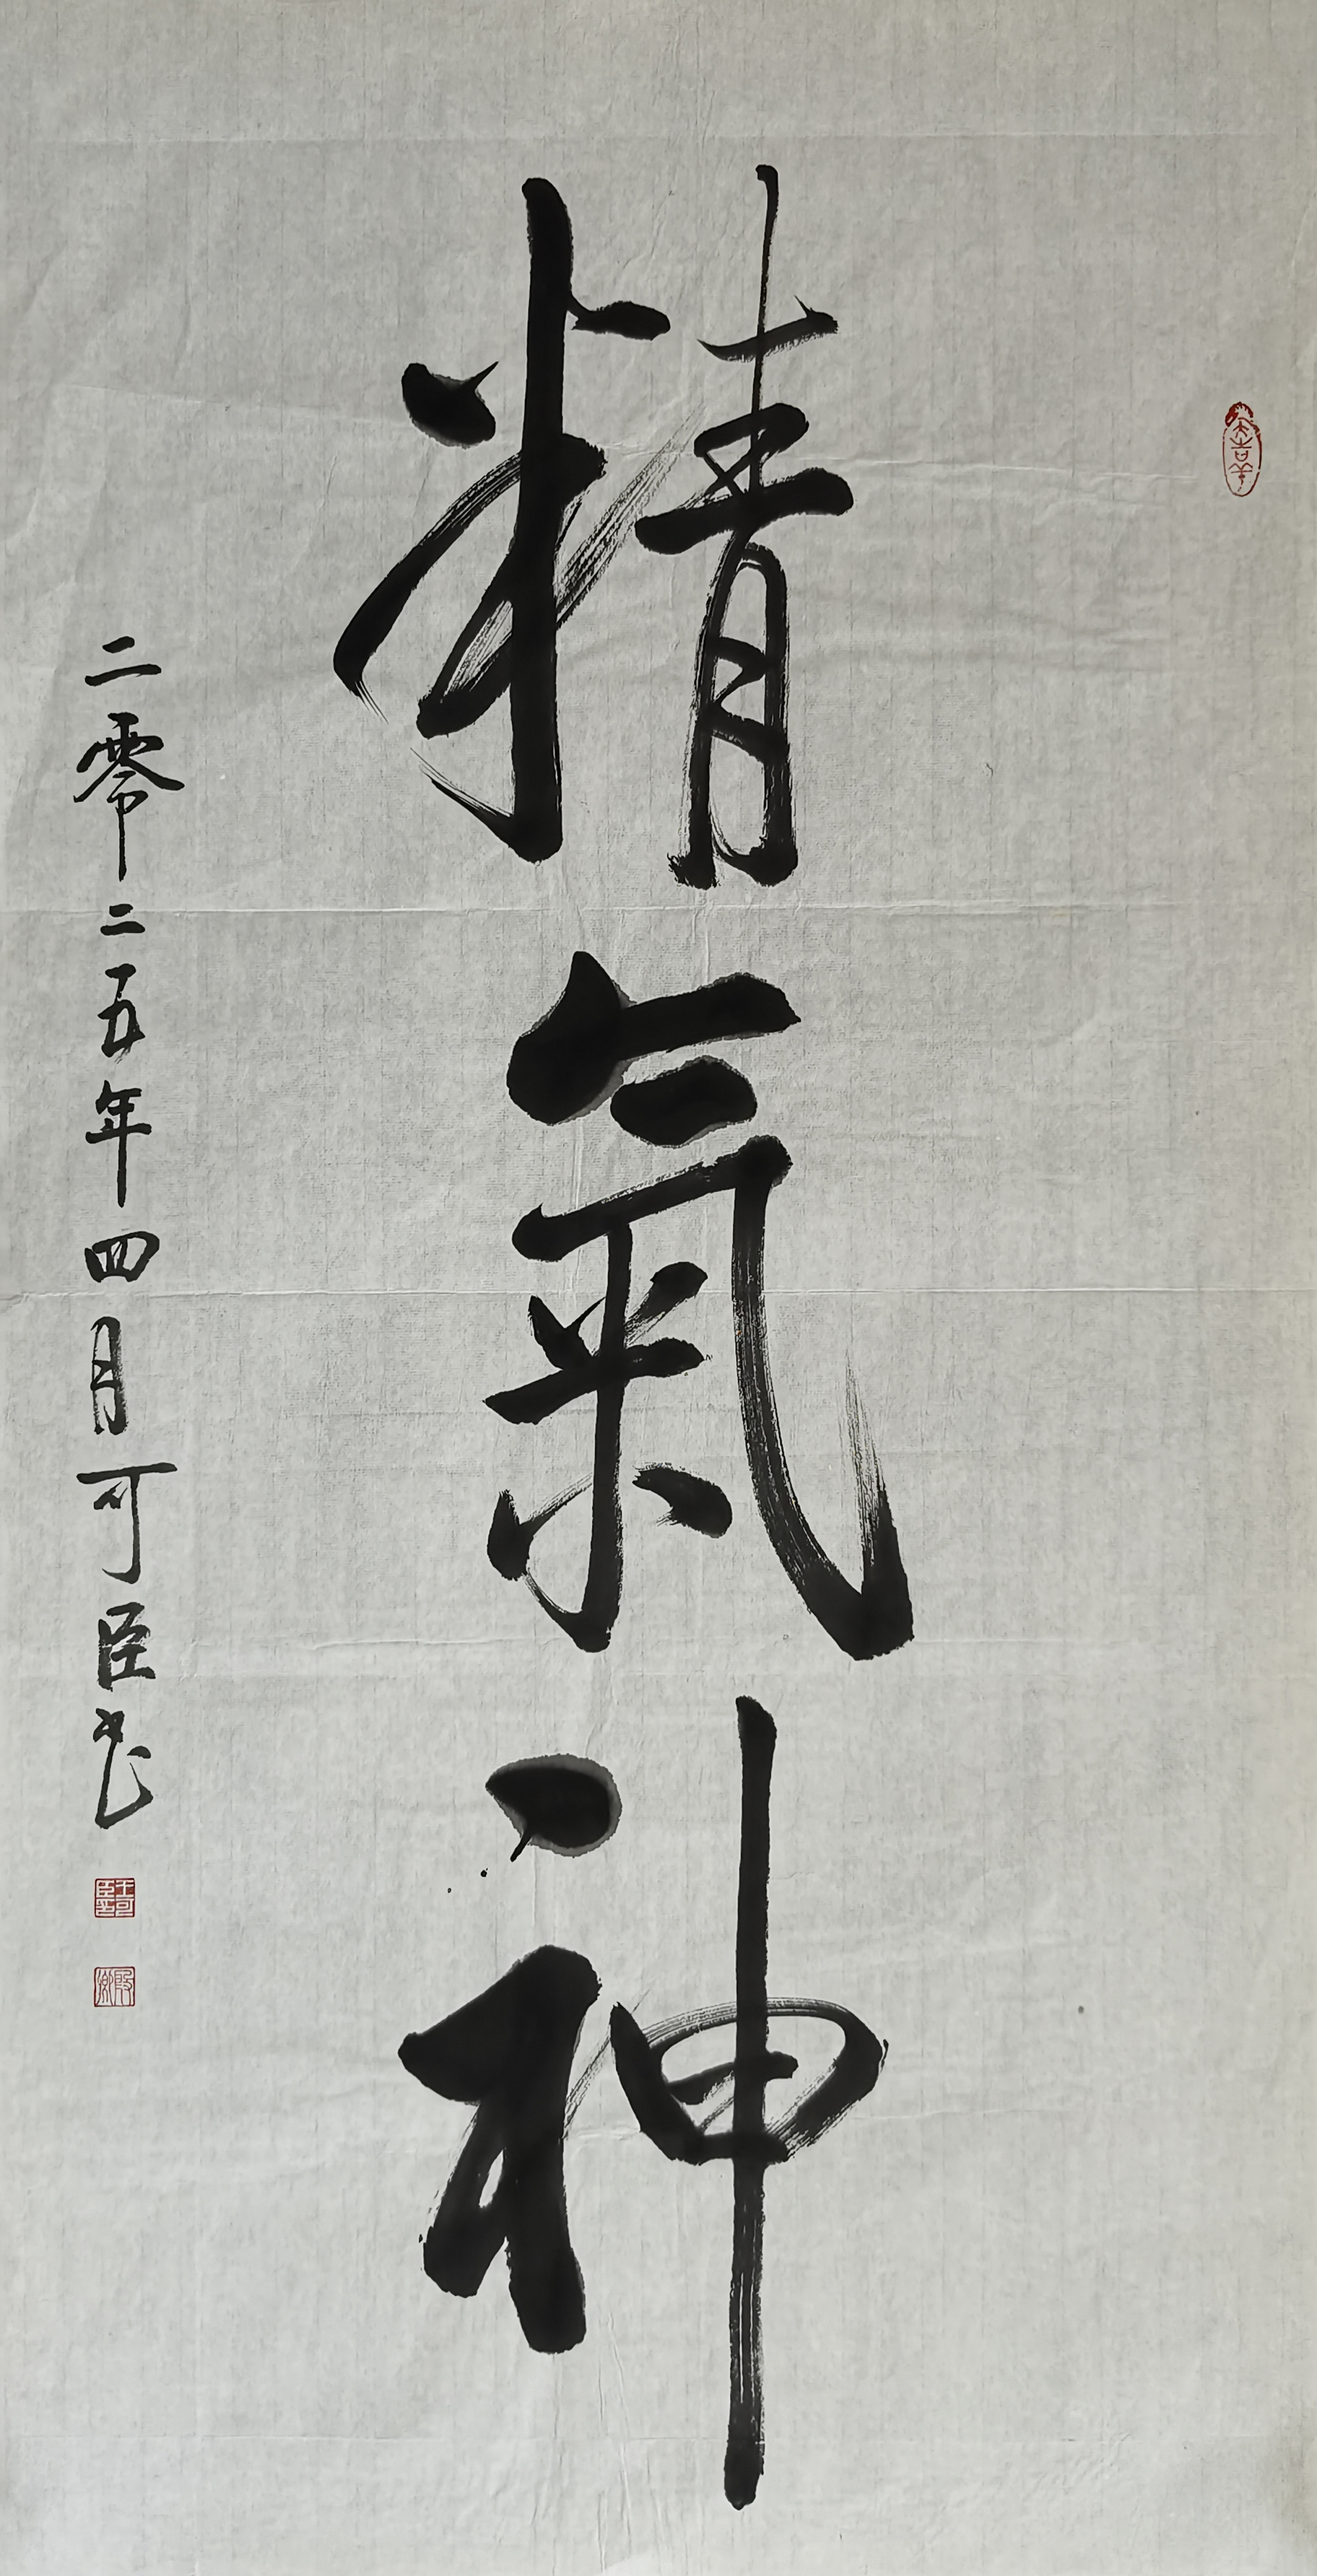 精氣神
二零二五年四月可臣书